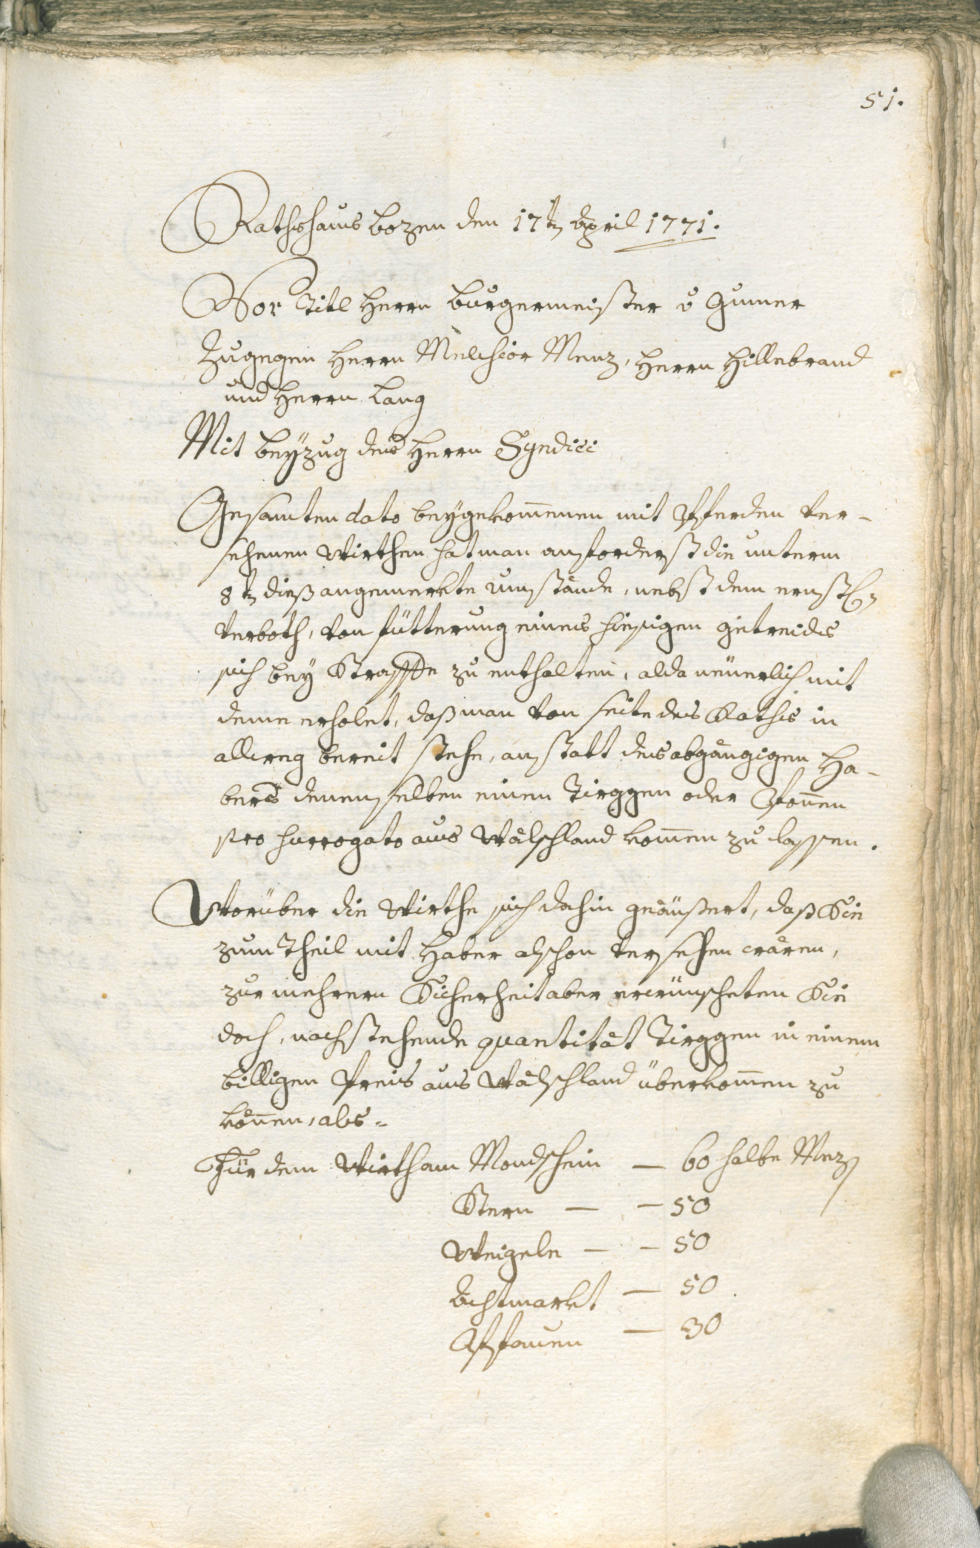 51.
Rathshaus Bozen den 17ten April 1771.
Vor Titl Herrn Burgermeister v Gumer
Zugegen Herrn Melchior Menz, Herrn Hillebrand
und Herrn Lang
Mit beyzug des Herrn Syndici
Gesamten dato beygekommenen mit Pferden ver-
sehenen Wirthen hat man anforderst die unterm
8ten dieß angemerkte Umstände, nebst dem
verboth, von fütterung eines hiesigen getreides
sich bey Straffe zu enthalten, alda neuerlich mit
deme erholet, daß man von seite des Raths in
allweg bereit stehe, anstatt des abgängigen Ha-
bers denenselben einen Türggen oder Ponen
pro surrogato aus Wälschland komen zu lassen.
Worüber die Wirthe sich dahin geäußert, daß Sie
zum Theil mit Haber alschon versehen wären,
zur mehrern Sicherheit aber erwünscheten Sie
doch, nachstehende quantität Türggen in einem
billigen Preis aus Wälschland überkomen zu
könen, als-
Für dem Wirth am Mondschein — 60 halbe Mez
Stern — — 50
Weigele — — 50
Viehmarkt — 50.
Pfauen — 30